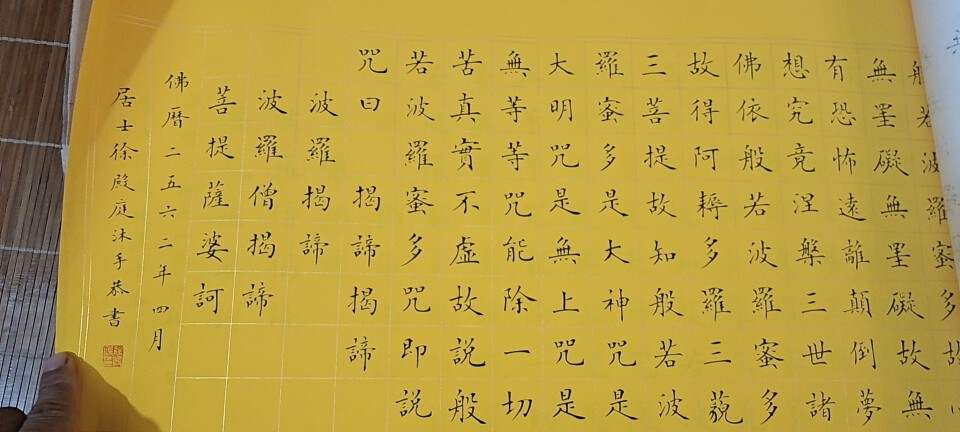 般若波羅蜜多故
無墨礙無墨礙故無
有恐怖遠離顛倒夢
想究竟涅槃三世諸
佛依般若波羅蜜多
故得阿耨多羅三藐
三菩提故知般若波
羅蜜多是大神咒是
大明咒是無上咒是
無等等咒能除一切
苦真實不虛故說般
若波羅蜜多咒即說
咒曰 揭諦揭諦
波羅揭諦
波羅僧揭諦
菩提薩婆訶
佛曆二五六二年四月
居士徐殿庭沐手恭書